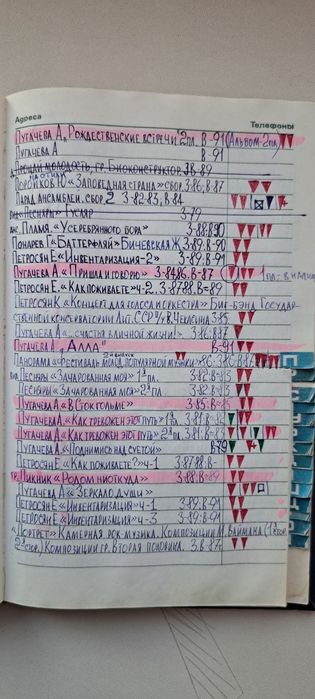 Адреса Телефоны
Пугачева А. Рождественские встречи 2пл. В-91 (Альбом-2пл)
Пугачева А В-91
Прощай молодость, гр. Биоконструктор. З.В-89
"Заповедная страна" сбор. 3.86, В.87
Парад ансамблей. сбор 2 3-82-83, В.84
"Песняры" Гусляр 3-79
анс. Пламя. «У серебряного бора» 3-88.В.90
Понарев Г. «Баттерфляй» Бичевская Ж. 3-89.В-90
Петросян Е «Инвентаризация-2» 3-89.В-91
Пугачева А «Пришла и говорю» 3-84.86. В-87
Петросян Е. «Как поживаете?» ч-2. 3.87.88. В-89
Петросян К «Концерт для голоса и оркестра» Биг-бэнд Государ-
ственной консерватории Лит. ССР п/у В. Чекасина 3.85
Пугачева А «...счастья в личной жизни!» 3.86.В.87
Пугачева А. „Алла" В-91
2 выпуск
Панорама «Фестиваль молод. популярной музыки» 86. 3.86-В-87
Песняры «Зачарованная моя» 1ª пл. 3.82.В-83
Песняры «Зачарованная моя» 2ª пл. 3.82.В-83
Пугачева А «В Стокгольме» 3.85.В-85
Пугачева А «Как тревожен этот путь» 1ª пл. 3.81.В-82
Пугачева А «Как тревожен этот путь» 2ª пл. 3.81.В-83
Пугачева А «Поднимись над суетой» В79
Петросян Е «Как поживаете?» ч-1 3.87.88.В-
гр. Пикник «Родом ниоткуда» 3.88.В-89
Пугачева А «Зеркало души»
Петросян Е «Инвентаризация» ч-1 3-89.В-91
Петросян Е «Инвентаризация» ч-3 3-89.В-91
«Портрет» Камерная рок-музыка. Композиции М. Ваймана (1ª стор
2ª стор.) Композиции гр. Вторая половина. 3.В.87